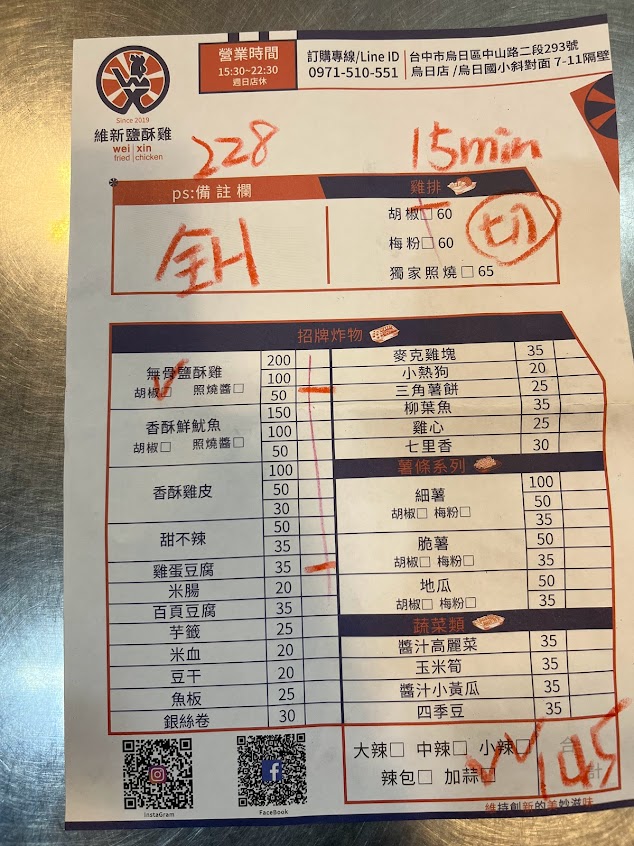 營業時間
15:30~22:30
週日店休
訂購專線/Line ID
0971-510-551
台中市烏日區中山路二段293號
烏日店 /烏日國小斜對面 7-11隔壁
Since 2019
維新鹽酥雞
wei xin
fried chicken
228
15min
ps:備註欄
雞排
胡椒□ 60
梅粉□ 60
獨家照燒□ 65
切
招牌炸物
無骨鹽酥雞 200
胡椒□ 照燒醬□ 100
50
香酥鮮魷魚 150
胡椒□ 照燒醬□ 100
50
香酥雞皮 100
50
30
甜不辣 50
35
雞蛋豆腐 35
米腸 20
百頁豆腐 35
芋籤 25
米血 20
豆干 20
魚板 25
銀絲卷 30
麥克雞塊 35
小熱狗 20
三角薯餅 25
柳葉魚 35
雞心 25
七里香 30
薯條系列
細薯 100
胡椒□ 梅粉□ 50
35
脆薯 50
胡椒□ 梅粉□ 35
地瓜 50
胡椒□ 梅粉□ 35
蔬菜類
醬汁高麗菜 35
玉米筍 35
醬汁小黃瓜 35
四季豆 35
大辣□ 中辣□ 小辣□
辣包□ 加蒜□
合計
145
維持創新的美妙滋味
InstaGram
FaceBook